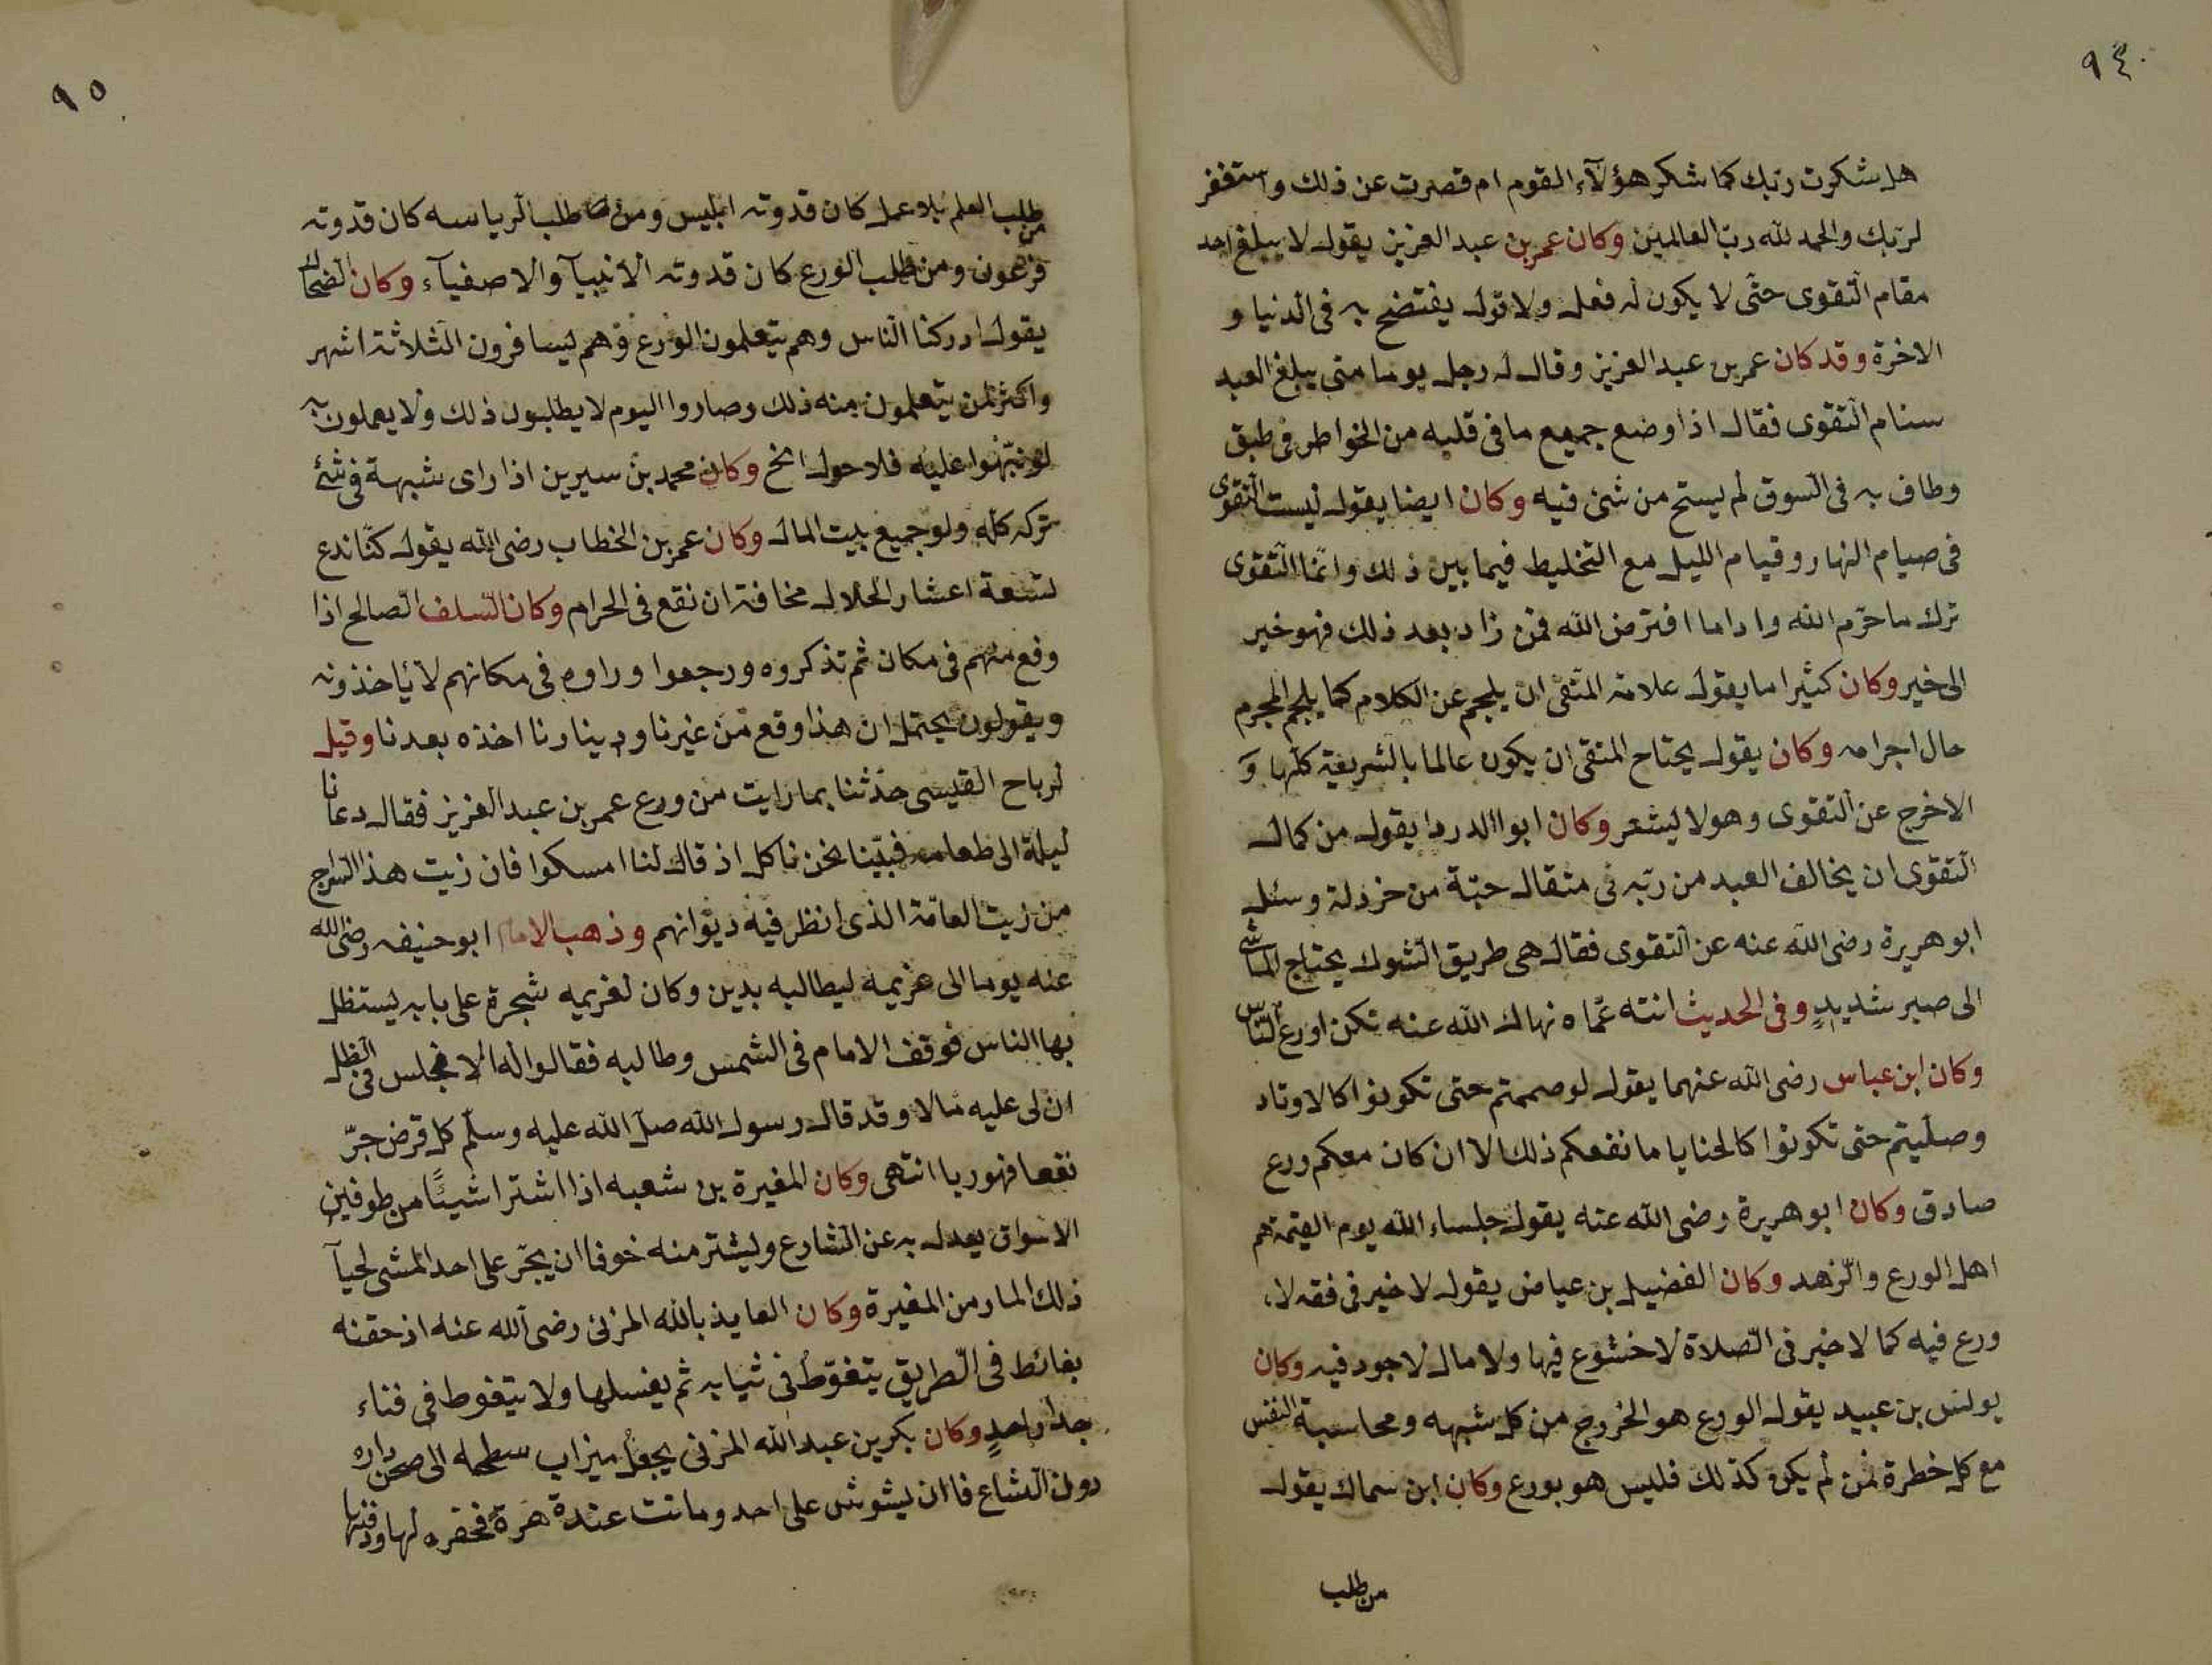 ٩٤
هل شكرت ربّك كما شكر هؤلآء القوم ام قصرت عن ذلك واستغفر
لربّك والحمد لله ربّ العالمين وكان عمر بن عبد العزيز يقول لا يبلغ احد
مقام التّقوى حتّى لا يكون له فعل ولا قول يفتضح به فى الدّنيا و
الاخرة وقد كان عمر بن عبد العزيز وقال له رجل يوما متى يبلغ العبد
سنام التّقوى فقال اذا وضع جميع ما فى قلبه من الخواطر فى طبق
وطاف به فى السّوق لم يستح من شئ فيه وكان ايضا يقول ليست التّقوى
فى صيام النهار وقيام الليل مع التخليط فيما بين ذلك وانّما التّقوى
ترك ما حرّم الله واداما افترض الله فمن زاد بعد ذلك فهو خير
الى خير وكان كثيرا ما يقول علامة المتّقى ان يلجم عن الكلام كما يلجم المجرم
حال اجرامه وكان يقول يحتاج المتقى ان يكون عالما بالشريعة كلّها وَ
الاخرج عن التّقوى وهو لا يشعر وكان ابوا الدردا يقول من كمال
التّقوى ان يخالف العبد من ربّه فى مثقال حبّة من خردلة وسئل
ابو هريرة رضى الله عنه عن التّقوى فقال هى طريق الشّوك يحتاج الماشى
الى صبر شديدٍ وفى الحديث انته عمّاه نهاك الله عنه تكن اورع النّاس
وكان ابن عباس رضى الله عنهما يقول لو صممتم حتى تكونوا كالاوتاد
وصلّيتم حتى تكونوا كالحنايا ما نفعكم ذلك الا ان كان معكم ورع
صادق وكان ابو هريرة رضى الله عنه يقول جلساء الله يوم القيمة هم
اهل الورع والزّهد وكان الفضيل بن عياض يقول لا خير فى فقه لا
ورع فيه كما لا خير فى الصّلاة لا خشوع فيها ولا مال لا جود فيه وكان
يولنس بن عبيد يقول الورع هو الخروج من كل شبهه ومحاسبة النفس
مع كل خطرة فمن لم يكن كذلك فليس هو بورع وكان ابن سماك يقول
من طلب
٩٥
من طلب العلم بلا عمل كان قدوته ابليس ومن طلب الرّياسه كان قدوته
فرعون ومن طلب الورع كان قدوته الانبيآ والاصفيآء وكان الضحاك
يقول ادركنا النّاس وهم يتعلمون الورع وهم ليسافرون الثلاثة اشهر
واكثر لمن يتعلمون منه ذلك وصاروا اليوم لا يطلبون ذلك ولا يعملون به
لو نبّهوا عليه فلا حول الخ وكان محمد بن سيرين اذا راى شبهة فى شئ
تركه كلّه ولو جميع بيت المال وكان عمر بن الخطاب رضى الله يقول كنّا ندع
تسعة اعشار الحلال مخافة ان نقع فى الحرام وكان السّلف الصالح اذا
وقع منهم فى مكان ثم تذكروه ورجعوا وراوه فى مكانهم لا يأخذونه
ويقولون يحتمل ان هذا وقع من غيرنا ودينارنا اخذه بعدنا وقيل
لرباح القيسى حدّثنا بما رايت من ورع عمر بن عبد العزيز فقال دعانا
ليلة الى طعامه فبيّنا نحن ناكل اذ قال لنا امسكوا فان زيت هذا السّراج
من زيت العامّة الذى انظر فيه ديوانهم وذهب الامام ابو حنيفه رضى الله
عنه يوما الى غريمه ليطالبه بدين وكان لغريمه شجرة على بابه يستظل
بها الناس فوقف الامام فى الشمس وطالبه فقالوا له الا تجلس فى الظل
ان لى عليه مالا وقد قال رسول الله صلّ الله عليه وسلّم كل قرض جرّ
نفعا فهو ربا انتهى وكان المغيرة بن شعبه اذا اشترا شيئًا من طوفين
الاسواق يعدل به عن الشارع وليشتر منه خوفا ان يحّر على احد المشى لحيآ
ذلك المار من المغيرة وكان العايذ بالله المزنى رضى الله عنه اذ حقنه
بغائط فى الطّريق يتغوّط فى ثيابه ثم يغسلها ولا يتغوط فى فناء
جدار احدٍ وكان بكر بن عبد الله المزنى يجعل ميزاب سطحه الى صحن داره
دون الشاع فا ان ليشوش على احد وماتت عندة هرة فحفره لها ودفنها